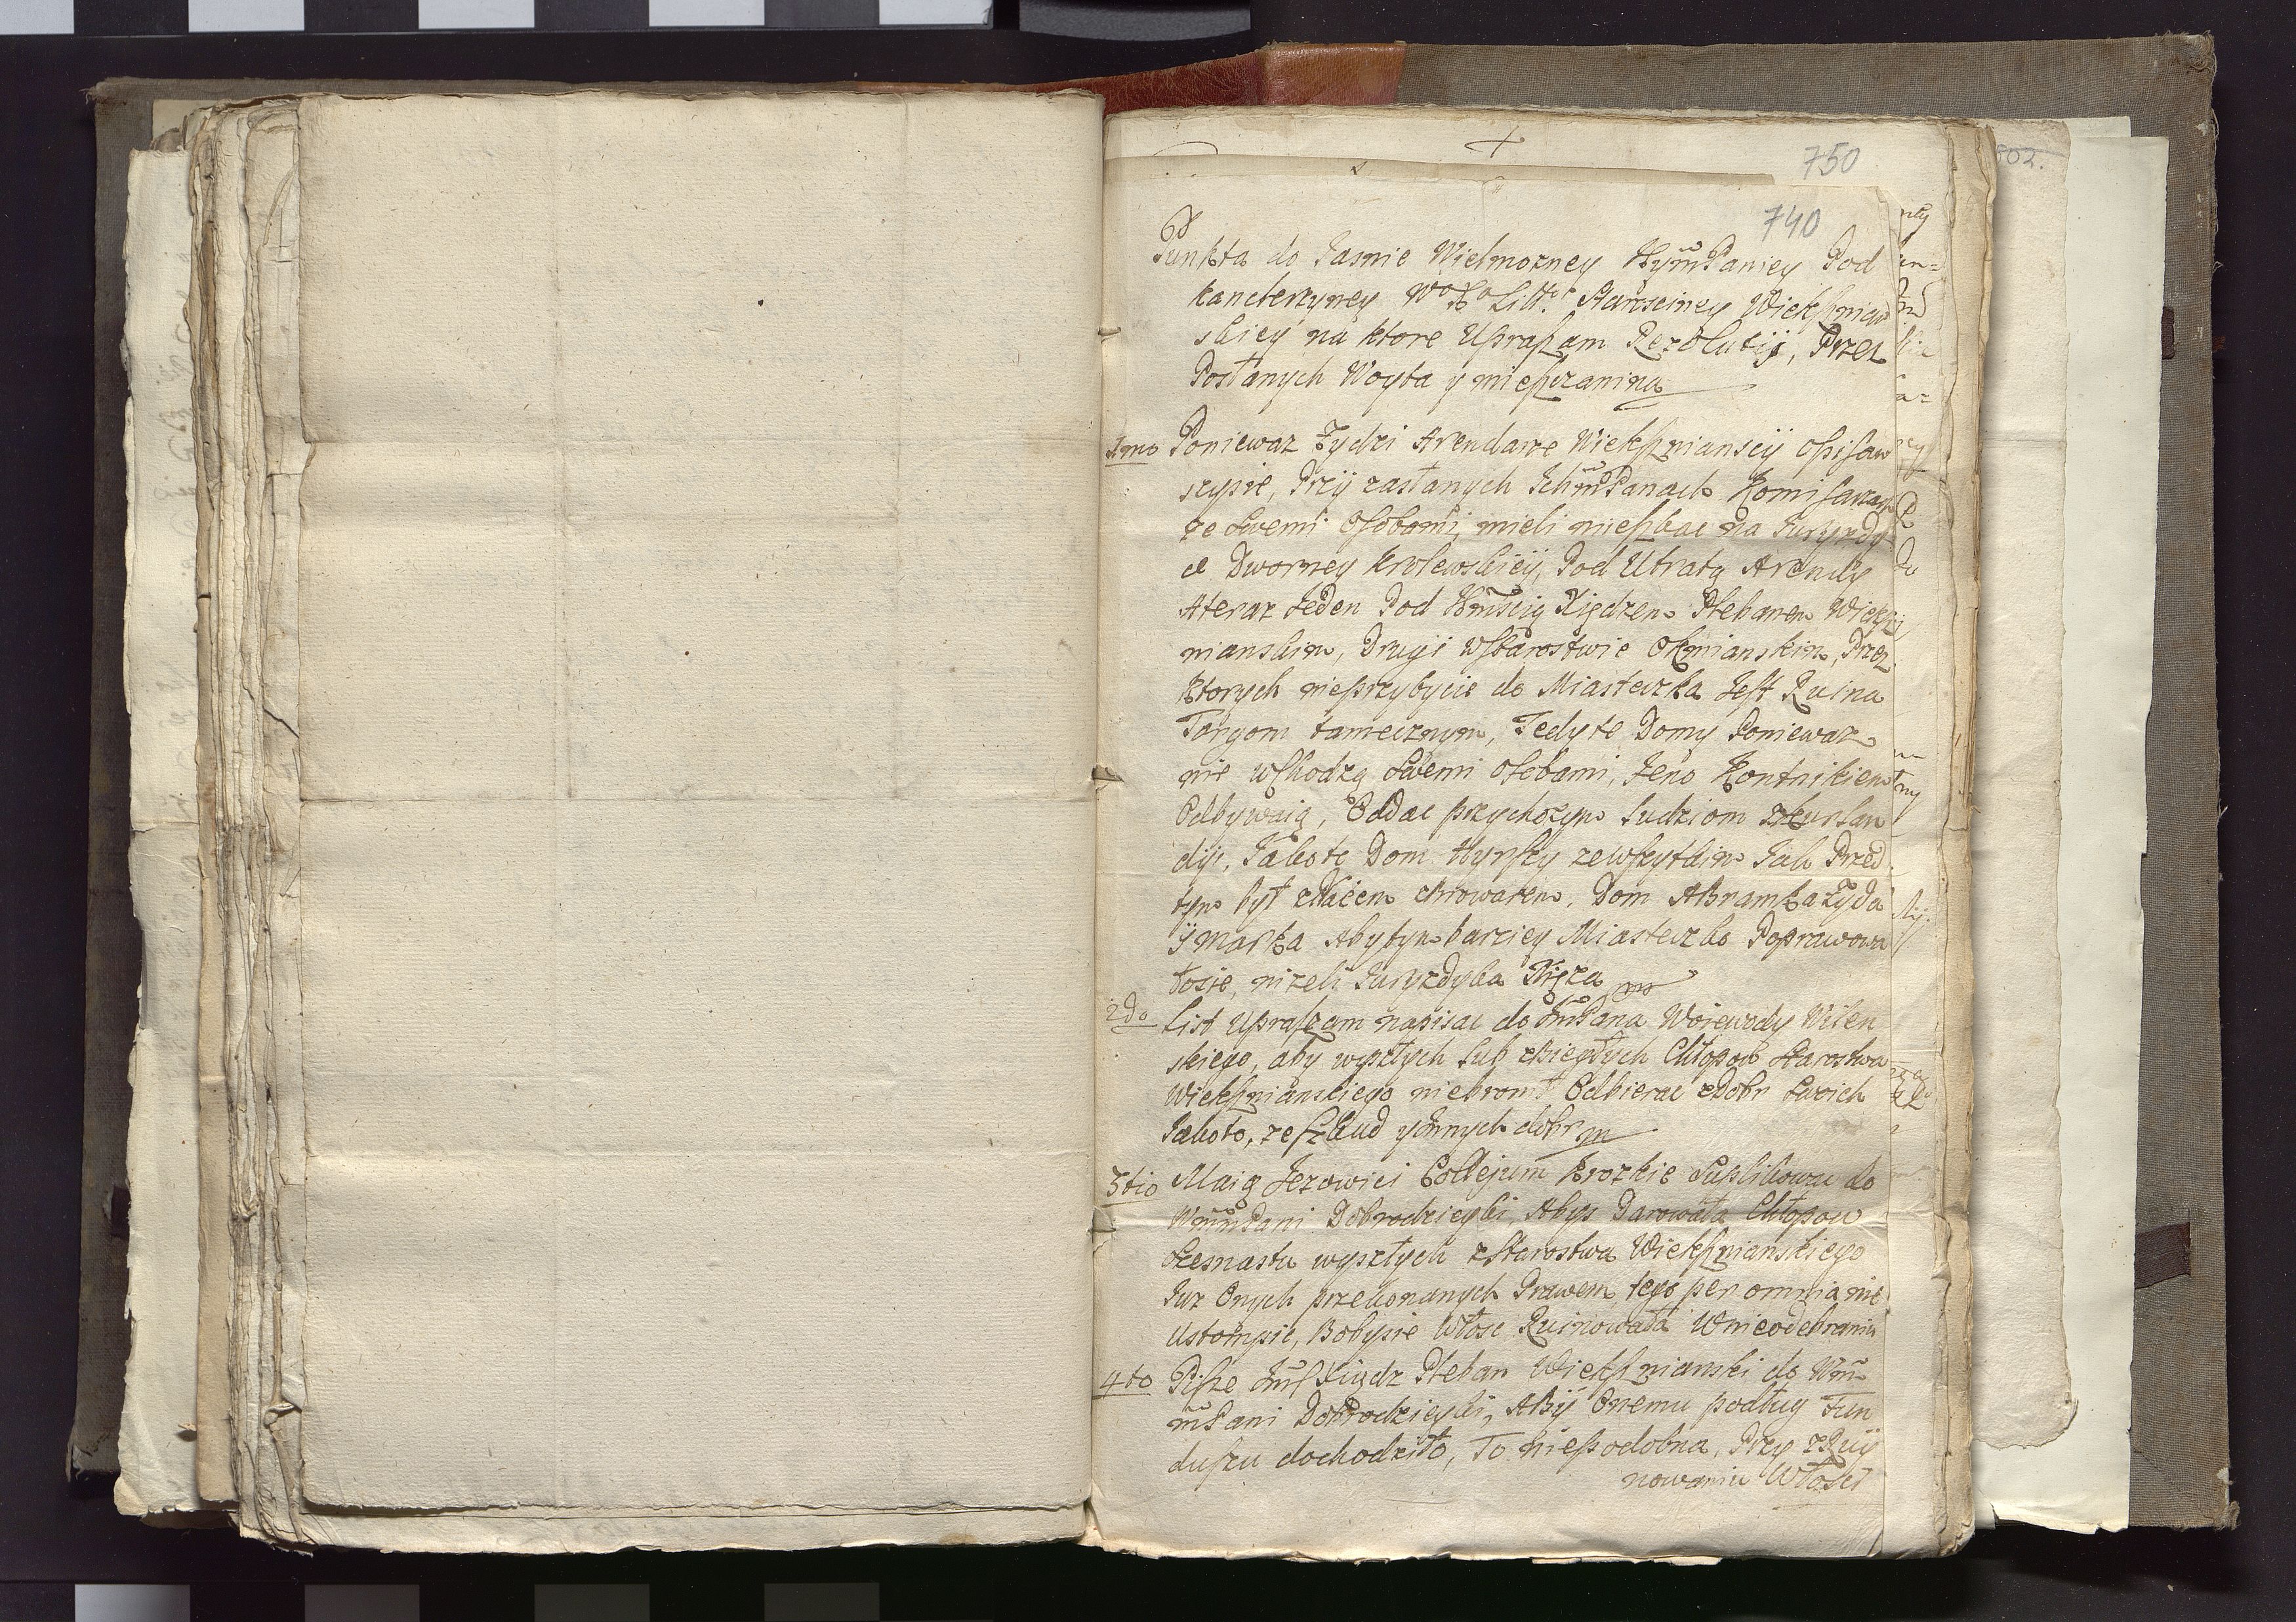 750
802.
740
Punkta do Jasnie Wielmozney Jeym Paniey Pod
kanclerzyney W° X° Litt° Starosciney Wiekszniew
skiey na ktore Upraszam Rezolutij, Przez
Posłanych Woyta y mieszczanina
1mo Poniewaz Zydzi Arendarze Wiekszniansciy Opisaw
szysie, Przÿ zasłanych Ichm Panach Komisarzach
ze swemi Osobami, mieli mieszkac na Juryzdy
ce Dworney krolewskieÿ, Pod Utratą Arendy
Ateraz Jeden Pod Jmscią Xiędzem Plebanem Wieksz
nianskim, Drugi wstarostwie Okmianskim, Przez
ktorych nieprzybycie do Miasteczka Jest Ruina
Torgom tamecznym, Tedy te Domy Poniewaz
nie wschodzą swemi Osobami, Jeno Kontnikiem
Odbywaią, Oddac przychozym Ludziom zKurlan
dij, Jakoto Dom Hyrszy zewszytkim Jak Przed
tym był zKacem Browarem, Dom ABramka Zyda
ÿ Morka Abytym barziey Miasteczko Poprawowa
łosie, nizeli Juryzdyka Xięza
2do List Upraszam napisac do Jm Pana Woiewody Wilen
skiego, aby wyszłych lub zbiegłych Chłopow Starostwa
Wiekszniańskiego niebronił Odbierac zDobr swoich
Jakoto, ze Szkud y innych dobr
3tio Maią Jezowici Collejum Krozkie Suplikowac do
Wmm Pani Dobrodzieyki, Abys Darowała Chłopow
szesnastu wyszłych zStarostwa Wiekszniańskiego
Juz Onych przekonanych Prawem, tego per omnia nie
Ustompic, Bobysie Włosc Ruinowała Wnieodebraniu
4to Pisze Jmś Xiądz Pleban Wieksznianski do Wm
m Pani Dobrodzieyki, ABÿ Onemu podług Fun
duszu dochodziło, To niepodobna, Przy zRuÿ
nowaniu Włosci